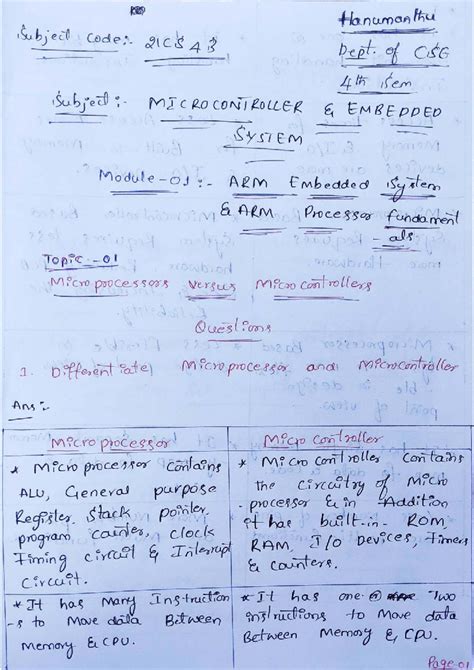 Hanumanthu
Subject Code:- 21CS43
Dept. of CSE
4th Sem
Subject:- MICROCONTROLLER & EMBEDDED
SYSTEM
Module-01:- ARM Embedded System
& ARM Processor fundament
-als
Topic:-01
Microprocessors versus Microcontrollers
Questions
1. Differentiate Microprocessor and Microcontroller
Ans:-
Microprocessor
* Microprocessor contains
ALU, General purpose
Register, Stack pointer,
program counter, clock
Timing circuit & Interrupt
Circuit.
* It has Many Instruction
-s to Move data Between
Memory & CPU.
Micro controller
* Micro controller contains
the circuitry of Micro
processor & in Addition
it has built-in ROM,
RAM, I/O Devices, Timers
& counters.
* It has one or Two
instructions to Move data
Between Memory & CPU.
Page-01